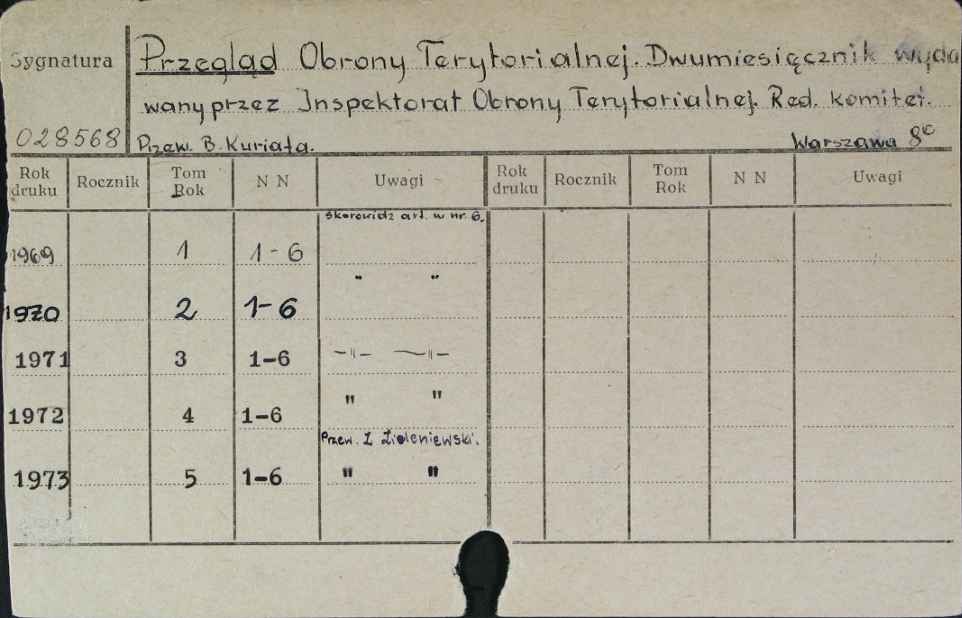 Sygnatura
Przegląd Obrony Terytorialnej. Dwumiesięcznik wyda
wany przez Inspektorat Obrony Terytorialnej. Red. komitet.
028568 Przew. B. Kuriata. Warszawa 8°
Rok druku Rocznik Tom Rok N N Uwagi Rok druku Rocznik Tom Rok N N Uwagi
Skorowidz art. w nr. 6.
1969 1 1-6
" "
1970 2 1-6
1971 3 1-6 -"- -"-
" "
1972 4 1-6
Przew. Z. Zieleniewski.
1973 5 1-6 " "